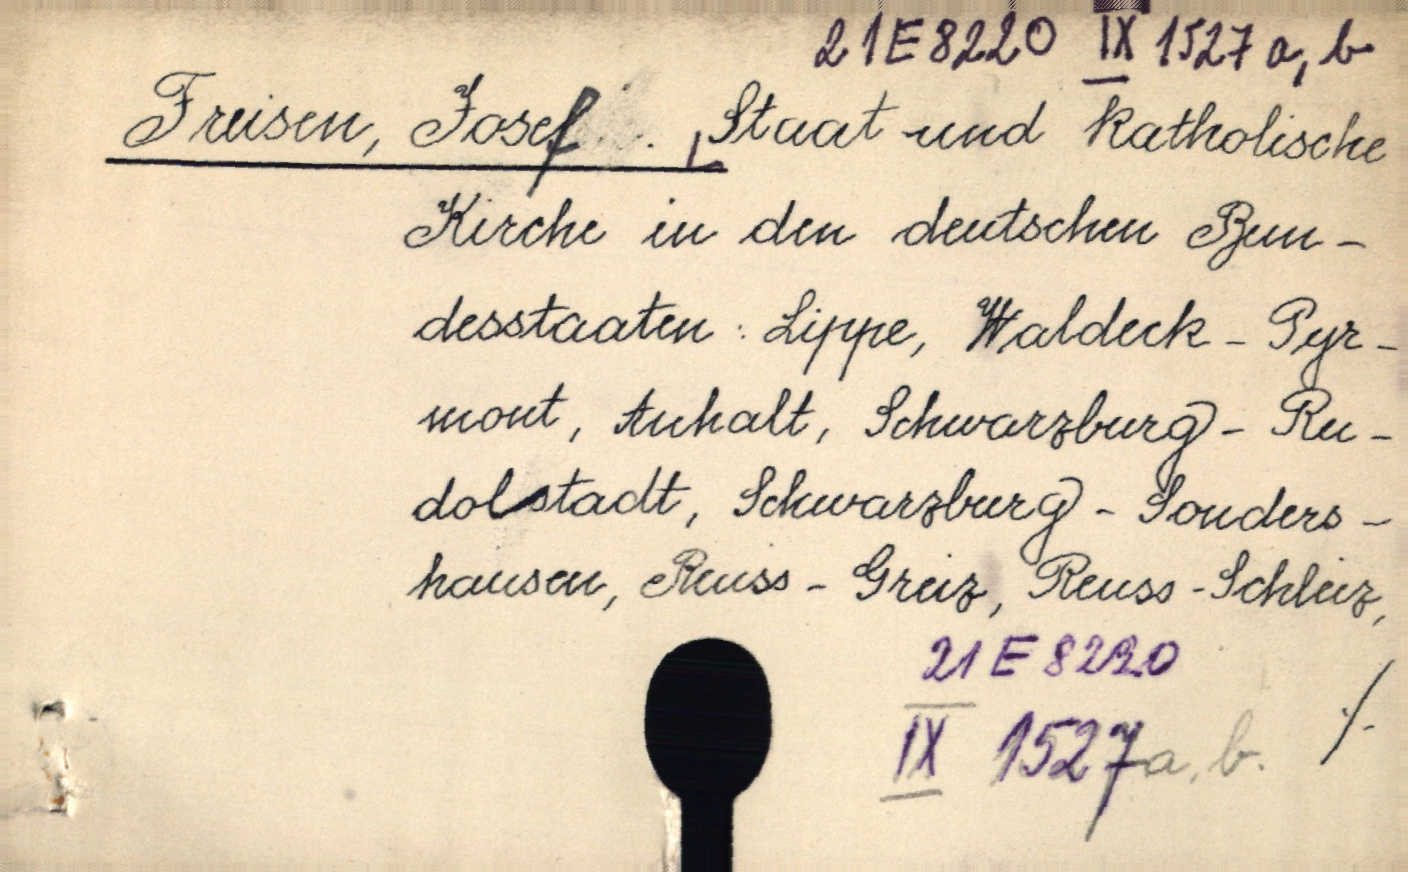 21E8220 IX 1527 a, b
Freisen, Josef . , Staat und katholische
Kirche in den deutschen Bun-
desstaaten : Lippe, Waldeck - Pyr-
mont, Anhalt, Schwarzburg - Ru-
dolstadt, Schwarzburg - Sonders-
hausen, Reuss - Greiz, Reuss - Schleiz,
21 E 8220
IX 1527 a, b. ./.